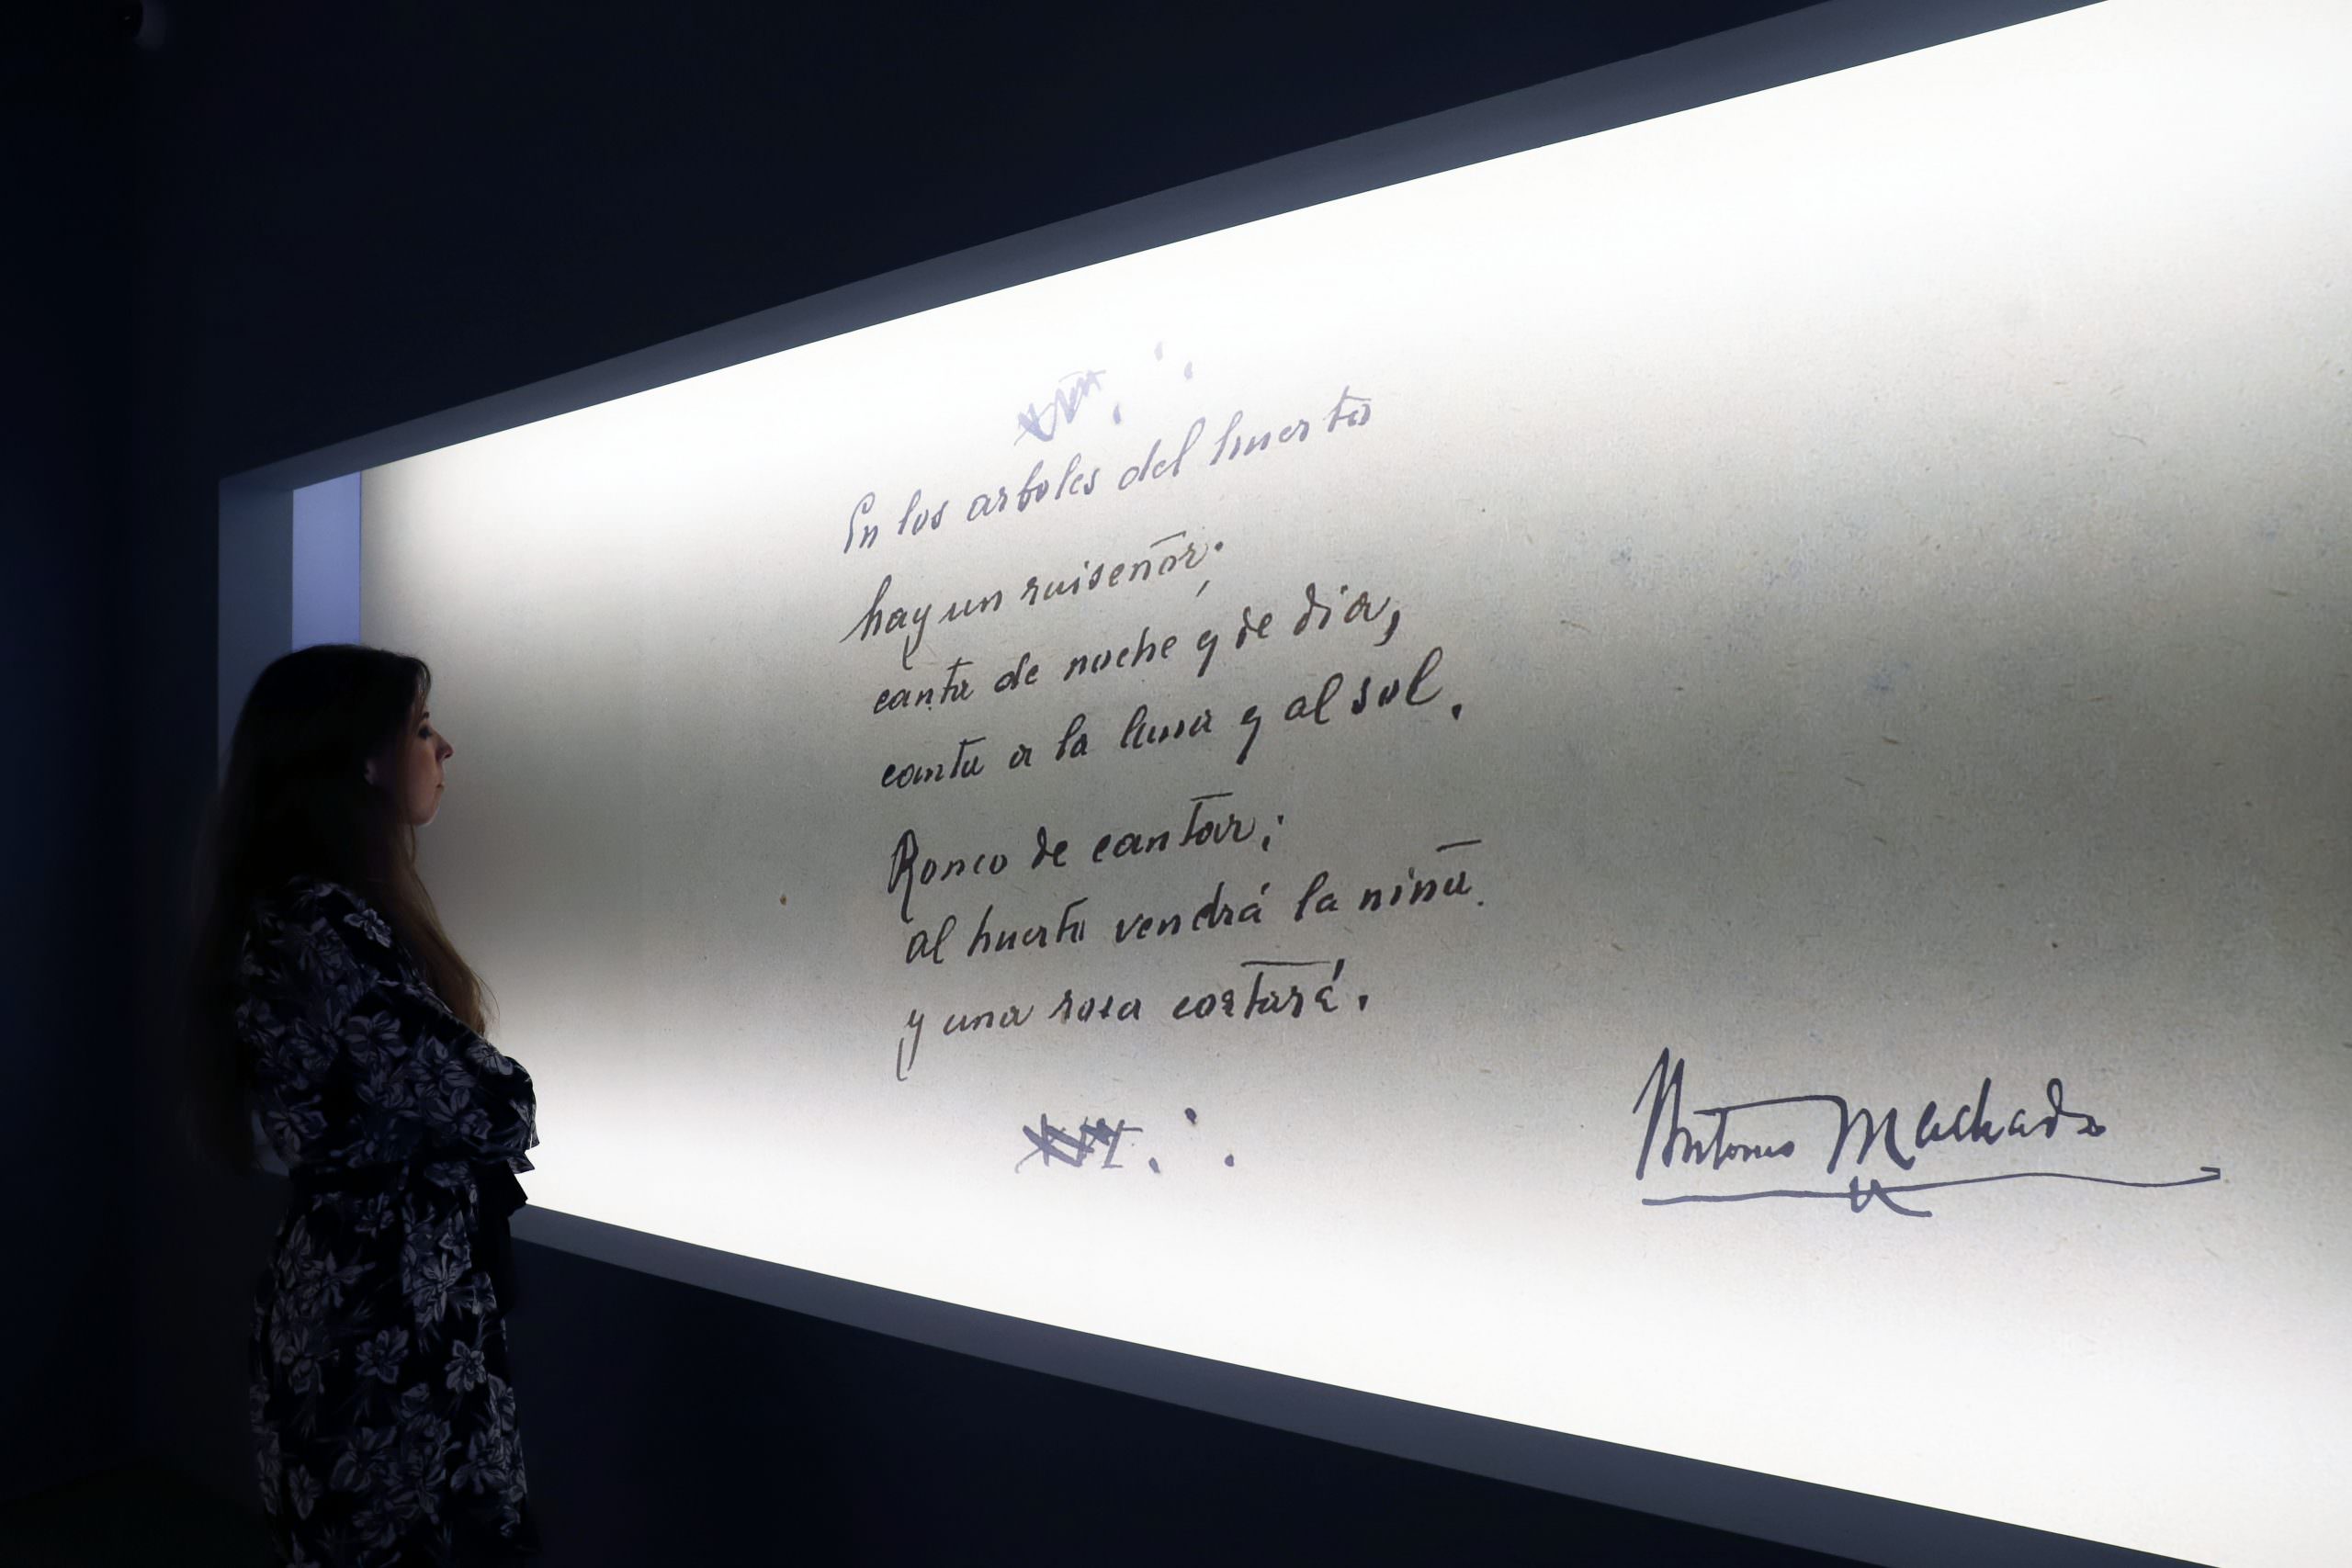 En los arboles del huerto
hay un ruiseñor;
canta de noche y de dia,
canta a la luna y al sol.
Ronco de cantar;
al huerto vendrá la niña
y una rosa cortará.
Antonio Machado